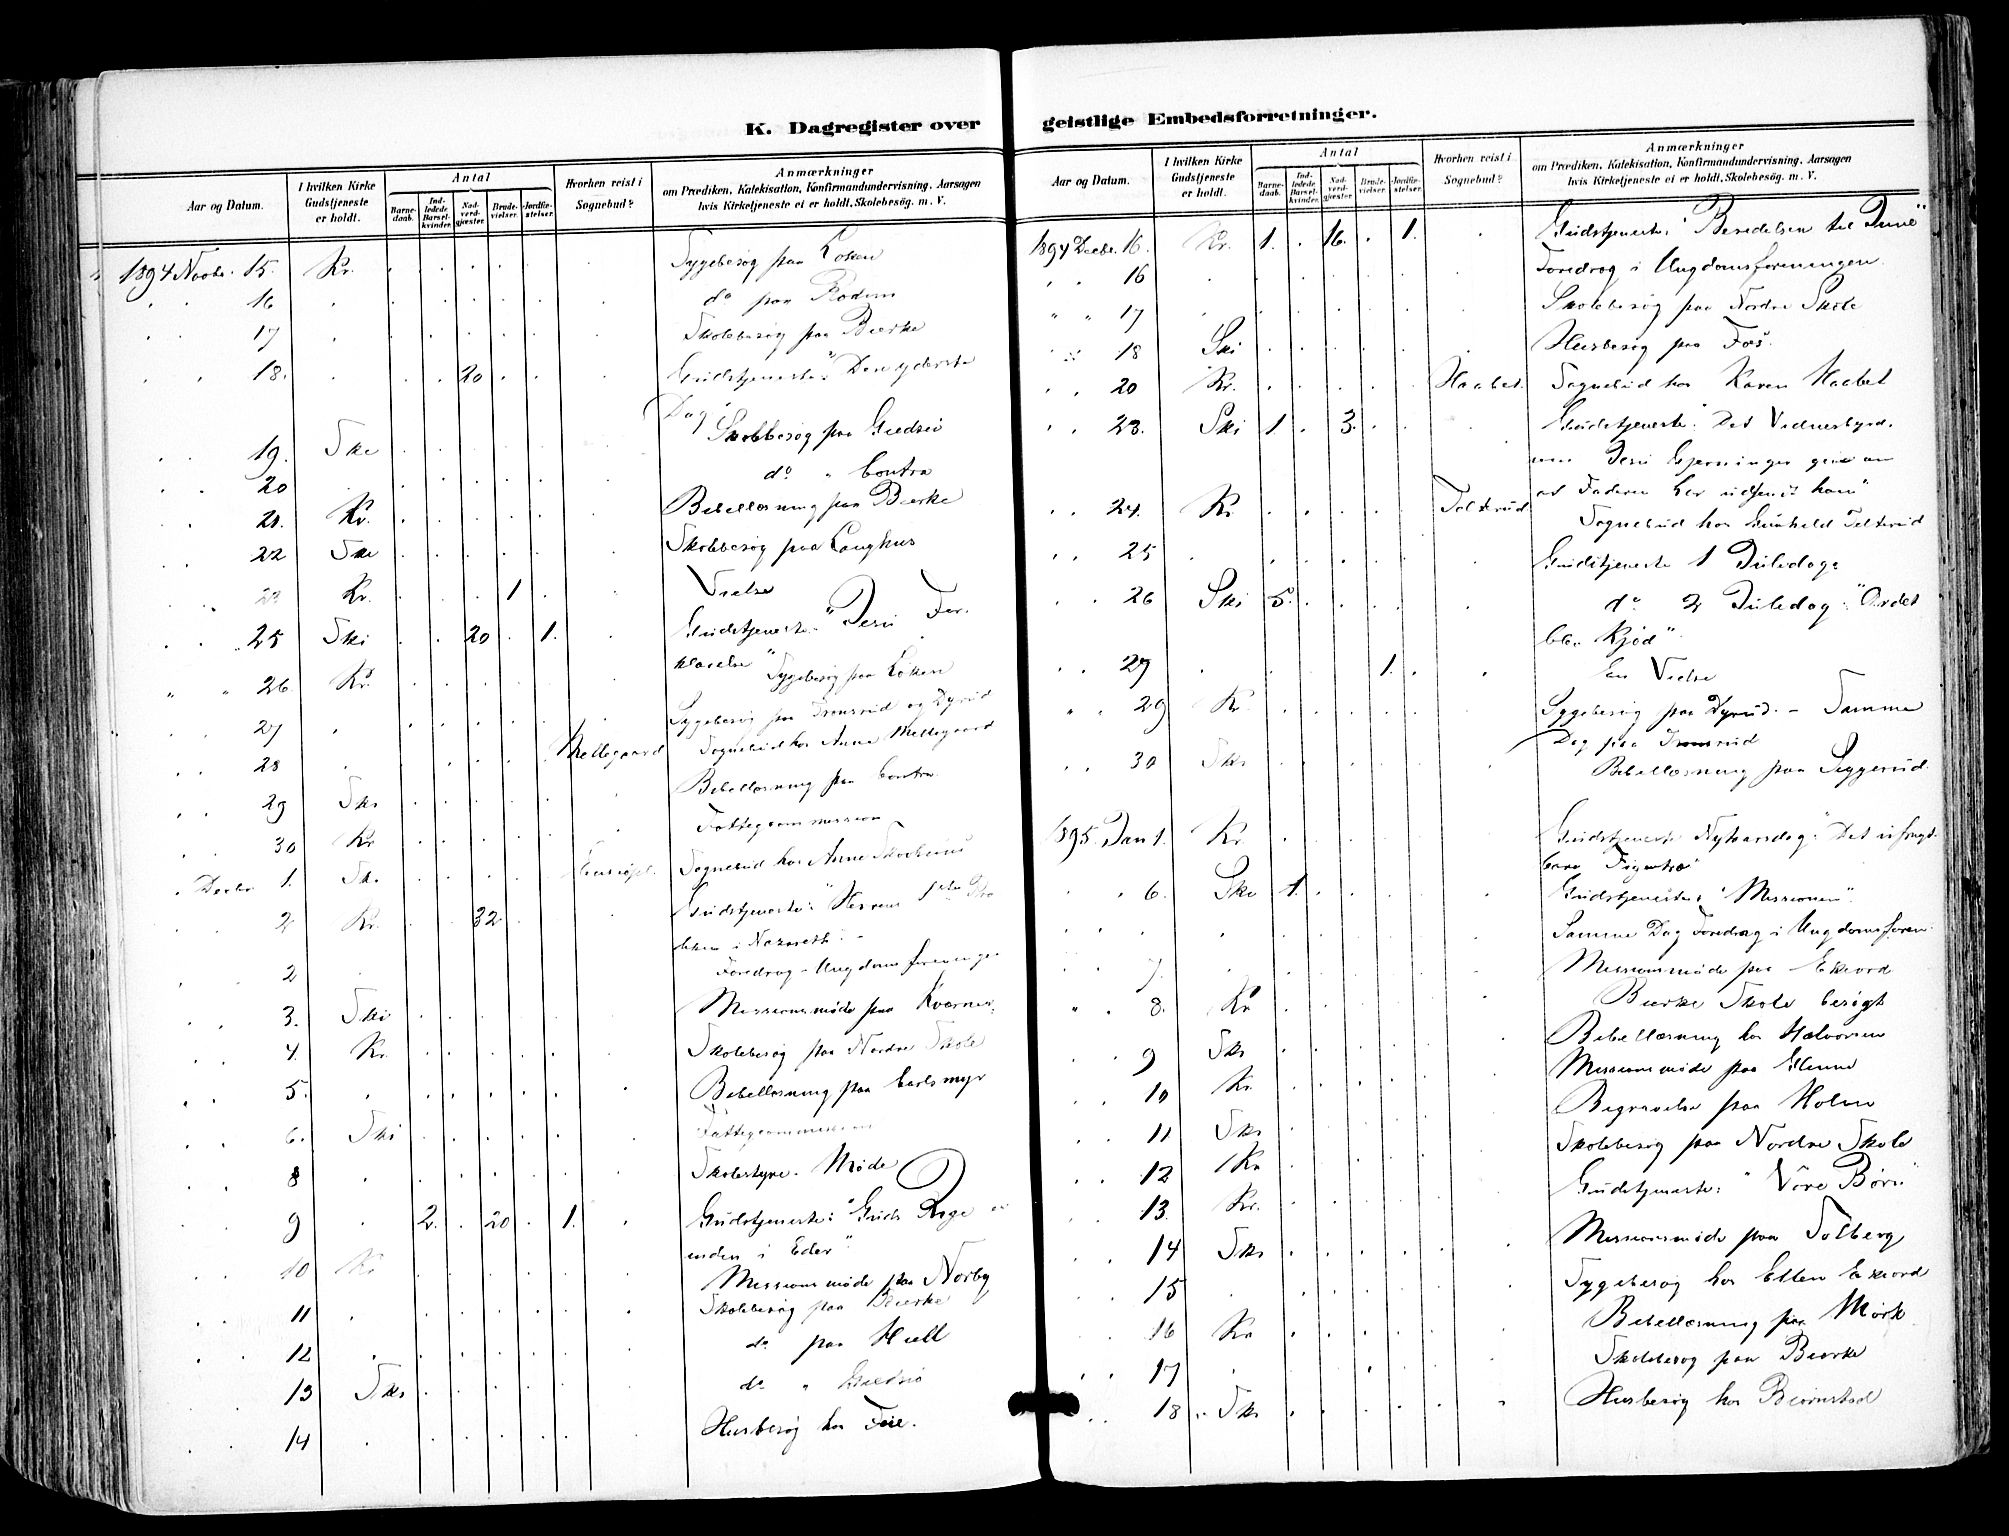 K. Dagregister over geistlige Embedsforretninger.
Aar og Datum.
I hvilken Kirke Gudstjeneste er holdt.
Antal
Barne-daab.
Ind-ledede Barsel-kvinder.
Nad-verd-gjester.
Brude-vielser.
Jordfæ-stelser.
Hvorhen reist i Sognebud?
Anmærkninger
om Prædiken, Katekisation, Konfirmandundervisning. Aarsagen
hvis Kirketjeneste ei er holdt. Skolebesøg. m. V.
1894 Novbr. 15. Kr. Sygebesøg paa Loken
16 do paa Rodem
17 Skolebesøg paa Bjerke
18. 20 Gudstjeneste: "Den yderste
Dag"
19. Ski Skolebesøg paa Gjedsø
20 do " Contra
21. Kr. Bibellæsning paa Bjerke
22 Ski Skolebesøg paa Langhus
Kr. 1 Vielse
25 Ski 20 1. Gudstjeneste: "Jesu For-
klarelse"
26. Kr. Sygebesøg paa Loken
27 Sygebesøg paa Tronsrud og Dyrud
28 Mellegaard Sognebud hos Anne Mellegaard
29 Ski Bibellæsning paa Contra
30 Kr Fattigcommission
Decbr 1. Ski Sognebud hos Anne
2 Kr. 32 Gudstjeneste: "Herrens
i Nazareth".
2 Foredrag i Ungdomsforeningen
3. Ski Missionsmøde paa Kværner
4. Kr. Skolebesøg paa Nordre Skole
5. Bibellæsning paa Carlsmyr
6. Ski Fattigcommission
8 Skolestyre. Møde
9 2. 20 1. Gudstjeneste: "Guds Rige er
inden i Eder"
10 Kr Missionsmøde paa Norby
11 Skolebesøg paa Bjerke
12 do paa Hiell
13 Ski do " Gjedsø
14 Husbesøg hos Foie.
Aar og Datum.
I hvilken Kirke Gudstjeneste er holdt.
Antal
Barne-daab.
Ind-ledede Barsel-kvinder.
Nad-verd-gjester.
Brude-vielser.
Jordfæ-stelser.
Hvorhen reist i Sognebud?
Anmærkninger
om Prædiken, Katekisation, Konfirmandundervisning. Aarsagen
hvis Kirketjeneste ei er holdt. Skolebesøg. m. V.
1894 Decbr. 16. Kr. 1. 16. 1. Gudstjeneste: "Beredelsen til Jul"
16 Foredrag i Ungdomsforeningen.
17 Skolebesøg paa Nordre Skole
18 Ski Husbesøg paa Fos.
20 Kr. Haabet. Sognebud hos Karen Haabet
23. Ski 1. 3. Gudstjeneste: "Det Vidnesbyrd.
Jesu Gjerninger give om
at Faderen har udsendt ham"
24. Kr Tolterud Sognebud hos Gunhild Tolterud
25 Gudstjeneste 1 Juledag
26 Ski 5. do 2 Juledag: "Ordet
blev Kjød".
27 1. En Vielse
29 Kr. Sygebesøg paa Dyrud. - Samme
Dag paa Tronsrud
30 Ski Bibellæsning paa Siggerud.
1895. Jan 1. Kr. Gudstjeneste Nytaarsdag: "Det ufrugt-
bare Figentræ"
6. Ski 1. Gudstjeneste: "Missionen".
Samme Dag Foredrag i Ungdomsforen.
7. Missionsmøde paa Ekeord
8. Kr Bjerke Skole besøgt
9 Ski Bibellæsning hos Halvorsen
10 Kr. Missionsmøde paa Glenne
11 Ski Begravelse paa Holen
12 Kr Skolebesøg paa Nordre Skole
13. Kr. Gudstjeneste: "Vore Børn"
14 Ski Missionsmøde paa Solberg
15 Sygebesøg hos Ellen Ekeord
16 Kr Bibellæsning paa Mørk
17 Skolebesøg paa Bjerke
18 Ski Husbesøg hos Bjørnstad